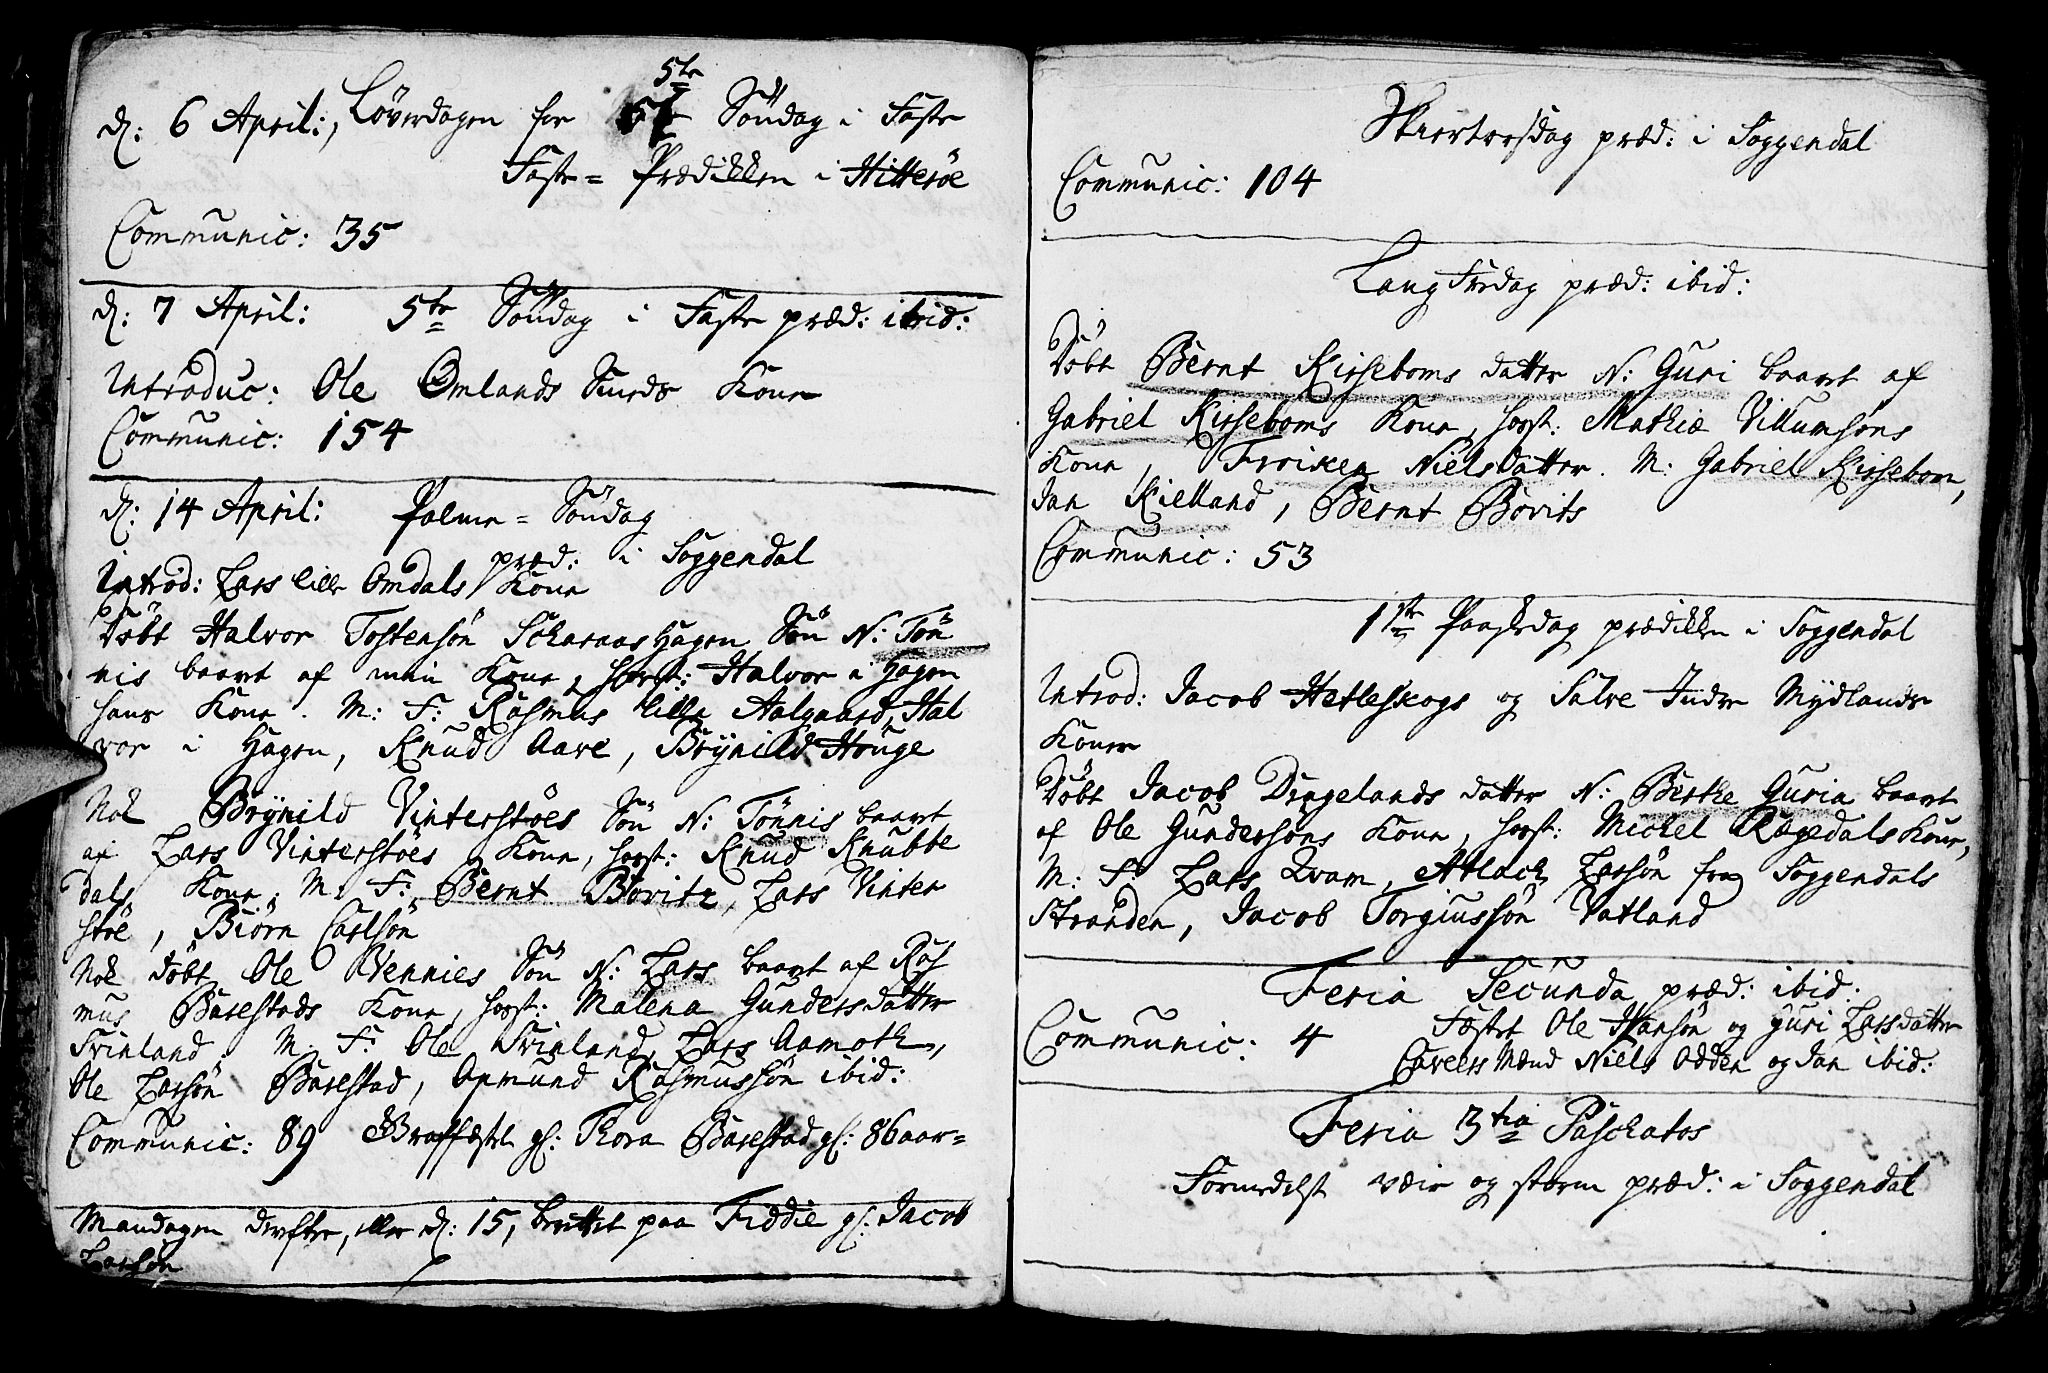 5te
d: 6 April:, Löverdagen for Söndag i Faste
Faste= Prædikken i Hitteröe
Communic: 35
d: 7 April: 5te Söndag i Faste præd: ibid:
Introduc: Ole Omlands Kone
Communic: 154
d: 14 April: Palme= Söndag
præd: i Soggendal
Introd: Lars lille Omdals Kone
Döbt Halvor Tostensön Hagen Sön N: Tön
nis baaret af min Kone, hosst: Halvor i Hagen
hans Kone. M: F: Rasmus lille Aalgaard, Hal
vor i Hagen, Knud Aare, Brÿnild Houge
Nok Brÿnild Vinterstöes Sön N: Tönnis baaret
af Lars Vinterstöes Kone, hosst: Knud Knubbe
dals Kone. M: F: Bernt Boritz, Lars Vinter
stöe, Biörn Carlsön
Nok döbt Ole Vennies Sön N: Lars baaret af Ras
mus Barestads Kone, hosst: Malena Gundersdatter
Treinland. M: F: Ole Treinland, Lars Aamoth,
Ole Larsön Barestad, Aamund Rasmussön ibid:
Communic: 89 Graffæstet gl: Thora Barestad gl: 86 aar=
Mandagen derefter, eller d: 15, berettet paa Fiddie gl: Jacob
Larsön
Skiertorsdag præd: i Soggendal
Communic: 104
Lang Fredag præd: ibid:
Döbt Bernt Kirseboms datter N: Guri baaret af
Gabriel Kirseboms Kone, hosst: Mathiæ Villumsöns
Kone, Froiken Nielsdatter. M: Gabriel Kirsebom,
Jan Kielland, Bernt Borits
Communic: 53
1ste Paaskedag prædikken i Soggendal
Introd: Jacob Hetleskogs og Salve Indre Mydlands
Koner
Döbt Jacob Dingelands datter N: Berthe Guria baaret
af Ole Gundersöns Kone, hosst: Michel Regedals Kone,
M: F: Lars Qvam, Atlach Larsön fra Soggendals
stranden, Jacob Torgiussön Vatland
Feria Secunda præd: ibid:
Communic: 4 Fæstet Ole Hansön og Guri Larsdatter
Caveers Mænd Niels Odden og Jan ibid:
Feria 3tia Paschatos
Formedelst veir og storm præd: i Soggendal